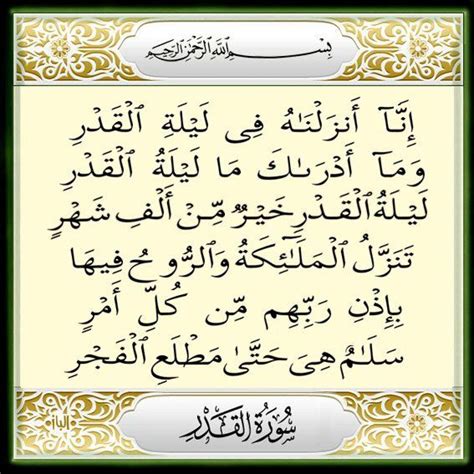 بِسْمِ اللَّهِ الرَّحْمَٰنِ الرَّحِيمِ
إِنَّآ أَنزَلْنَٰهُ فِى لَيْلَةِ ٱلْقَدْرِ
وَمَآ أَدْرَىٰكَ مَا لَيْلَةُ ٱلْقَدْرِ
لَيْلَةُ ٱلْقَدْرِ خَيْرٌ مِّنْ أَلْفِ شَهْرٍ
تَنَزَّلُ ٱلْمَلَٰٓئِكَةُ وَٱلرُّوحُ فِيهَا
بِإِذْنِ رَبِّهِم مِّن كُلِّ أَمْرٍ
سَلَٰمٌ هِىَ حَتَّىٰ مَطْلَعِ ٱلْفَجْرِ
سُورَةُ القَدْرِ